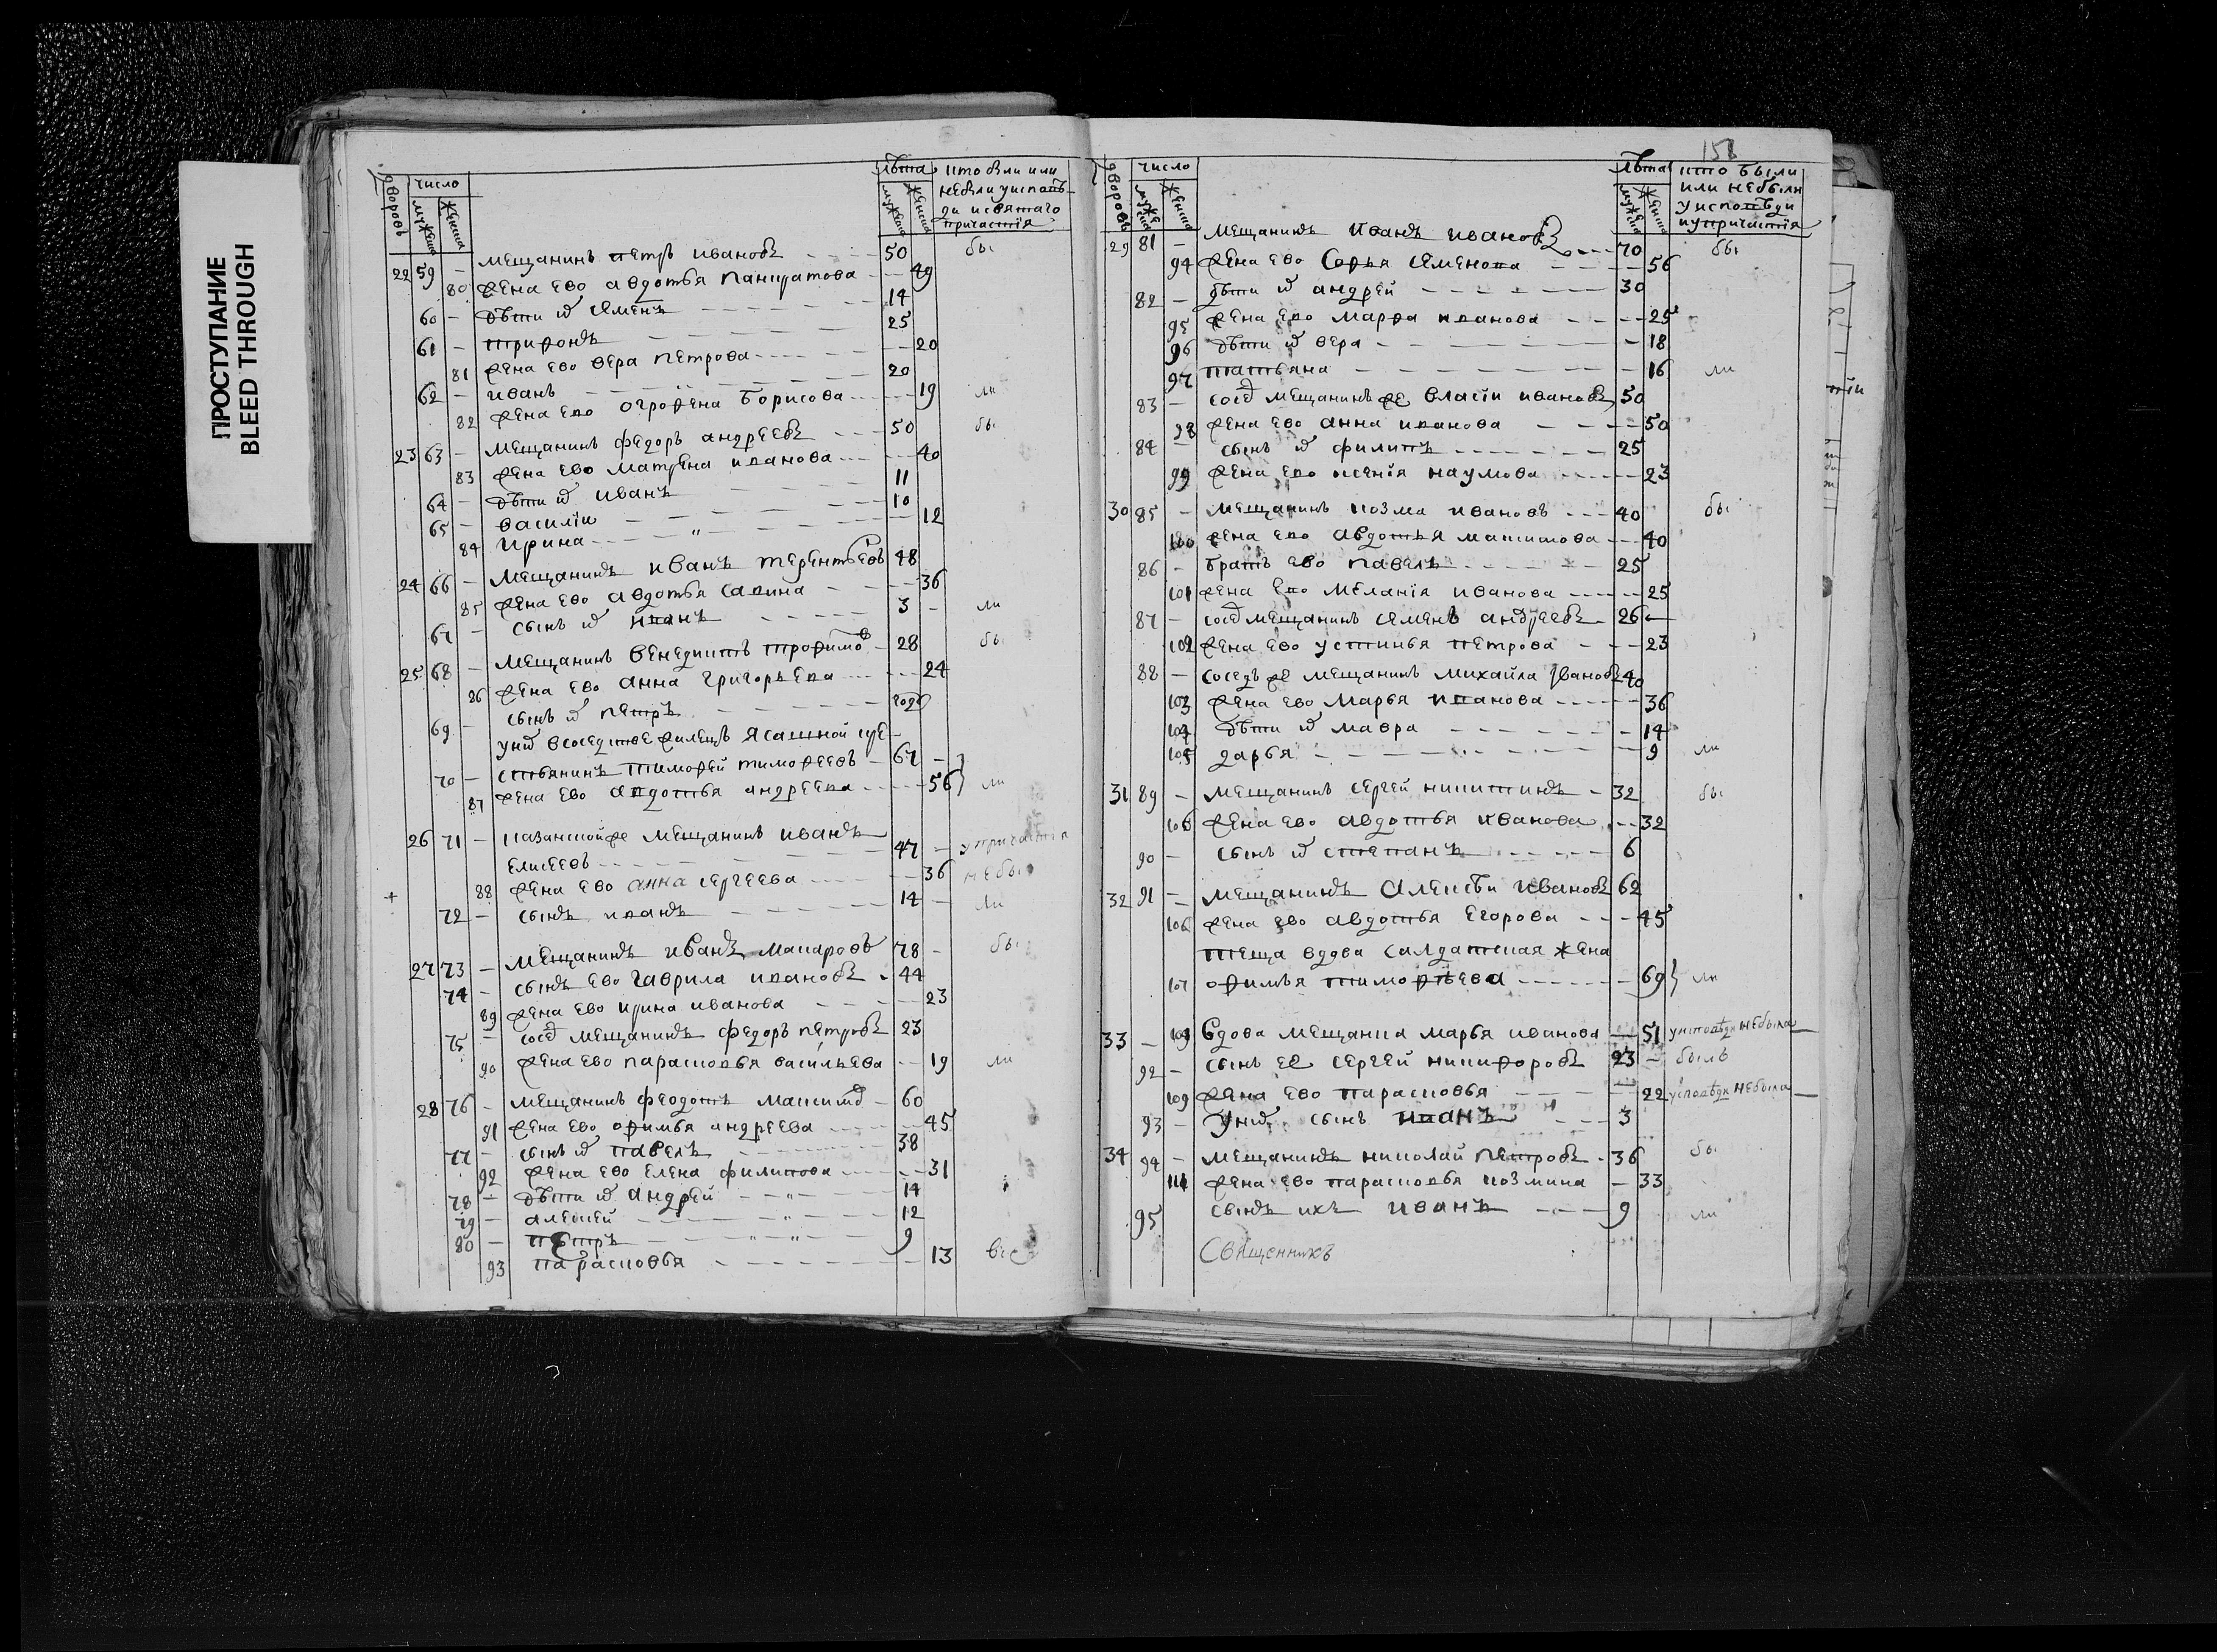 ПРОСТУПАНИЕ
BLEED THROUGH
дворовъ число мужеска женска лѣта мужеска женска кто были или
небыли уисповѣ-
ди исвятаго
причастія
22 59 – мещанинъ петръ ивановъ 50 бы
80 жена ево авдотья панкратова 49
60 – дѣти их семенъ 14
61 – трифонъ 25
81 жена ево вера петрова 20
62 – иванъ 20
82 жена ево огрофена борисова 19 ли
23 63 – мещанинъ федоръ андреевъ 50 бы
83 жена ево матрена иванова 40
64 – дѣти их иванъ 11
65 – василіи 10
84 ирина 12
24 66 – мещанинъ иванъ терентьевъ 48
85 жена ево авдотья савина 36
67 – сынъ их иванъ 3 – ли
25 68 – мещанинъ венедиктъ трофимо 28 бы
86 жена ево анна григорьева 24
69 – сынъ их петръ годъ
уних всоседстве жилецъ ясашной кре
70 – стьянинъ тимофей тимофеевъ 67
87 жена ево авдотья андреева 56 ли
26 71 – казанской же мещанинъ иванъ
елисеевъ 47 – упричастія
88 жена ево анна сергеева 36 небы
72 – сынъ иванъ 14 – ли
27 73 – мещанинъ иванъ макаровъ 78 – бы
74 – сынъ ево гаврила ивановъ 44
89 жена ево ирина иванова 23
75 – сосед мещанинъ федоръ петровъ 23
90 жена ево парасковья васильева 19 ли
28 76 – мещанинъ феодотъ максимов 60
91 жена ево офимья андреева 45
77 – сынъ их павелъ 38
92 жена ево елена филипова 31
78 – дѣти их андрей 14
79 – алексей 12
80 – петръ 9
93 парасковья 13 все
158
дворовъ число мужеска женска лѣта мужеска женска кто были
или небыли
уисповѣди
иупричастія
29 81 – мещанинъ иванъ ивановъ 70 бы
94 жена ево софья семенова 56
82 – дѣти их андрей 30
95 жена ево марфа иванова 25
96 дѣти их вера 18
97 татьяна 16 ли
83 – сосед мещанинъ же власіи ивановъ 50
98 жена ево анна иванова 50
84 – сынъ их филипъ 25
99 жена ево ксенія наумова 23
30 85 – мещанинъ козма ивановъ 40 бы
100 жена ево авдотья максимова 40
86 – братъ ево павелъ 25
101 жена ево меланія иванова 25
87 – сосед мещанинъ семенъ андреевъ 26
102 жена ево устинья петрова 23
88 – соседъ же мещанинъ михайла ивановъ 40
103 жена ево марья иванова 36
104 дѣти их мавра 14
105 дарья 9 ли
31 89 – мещанинъ сергей никитинъ 32 бы
106 жена ево авдотья иванова 32
90 – сынъ их степанъ 6
32 91 – мещанинъ алексѣи ивановъ 62
106 жена ево авдотья егорова 45
теща вдова салдатская жена
107 офимья тимофѣева 69 ли
33 – 108 вдова мещанка марья иванова 51 уисповѣди небыла
92 – сынъ ее сергей никифоровъ 23 – былъ
109 жена ево парасковья 22 уисповѣди небыла
93 – уних сынъ иванъ 3
34 94 – мещанинъ николай петровъ 36 бы
111 жена ево парасковья козмина 33
95 сынъ ихъ иванъ 9 ли
Священникъ